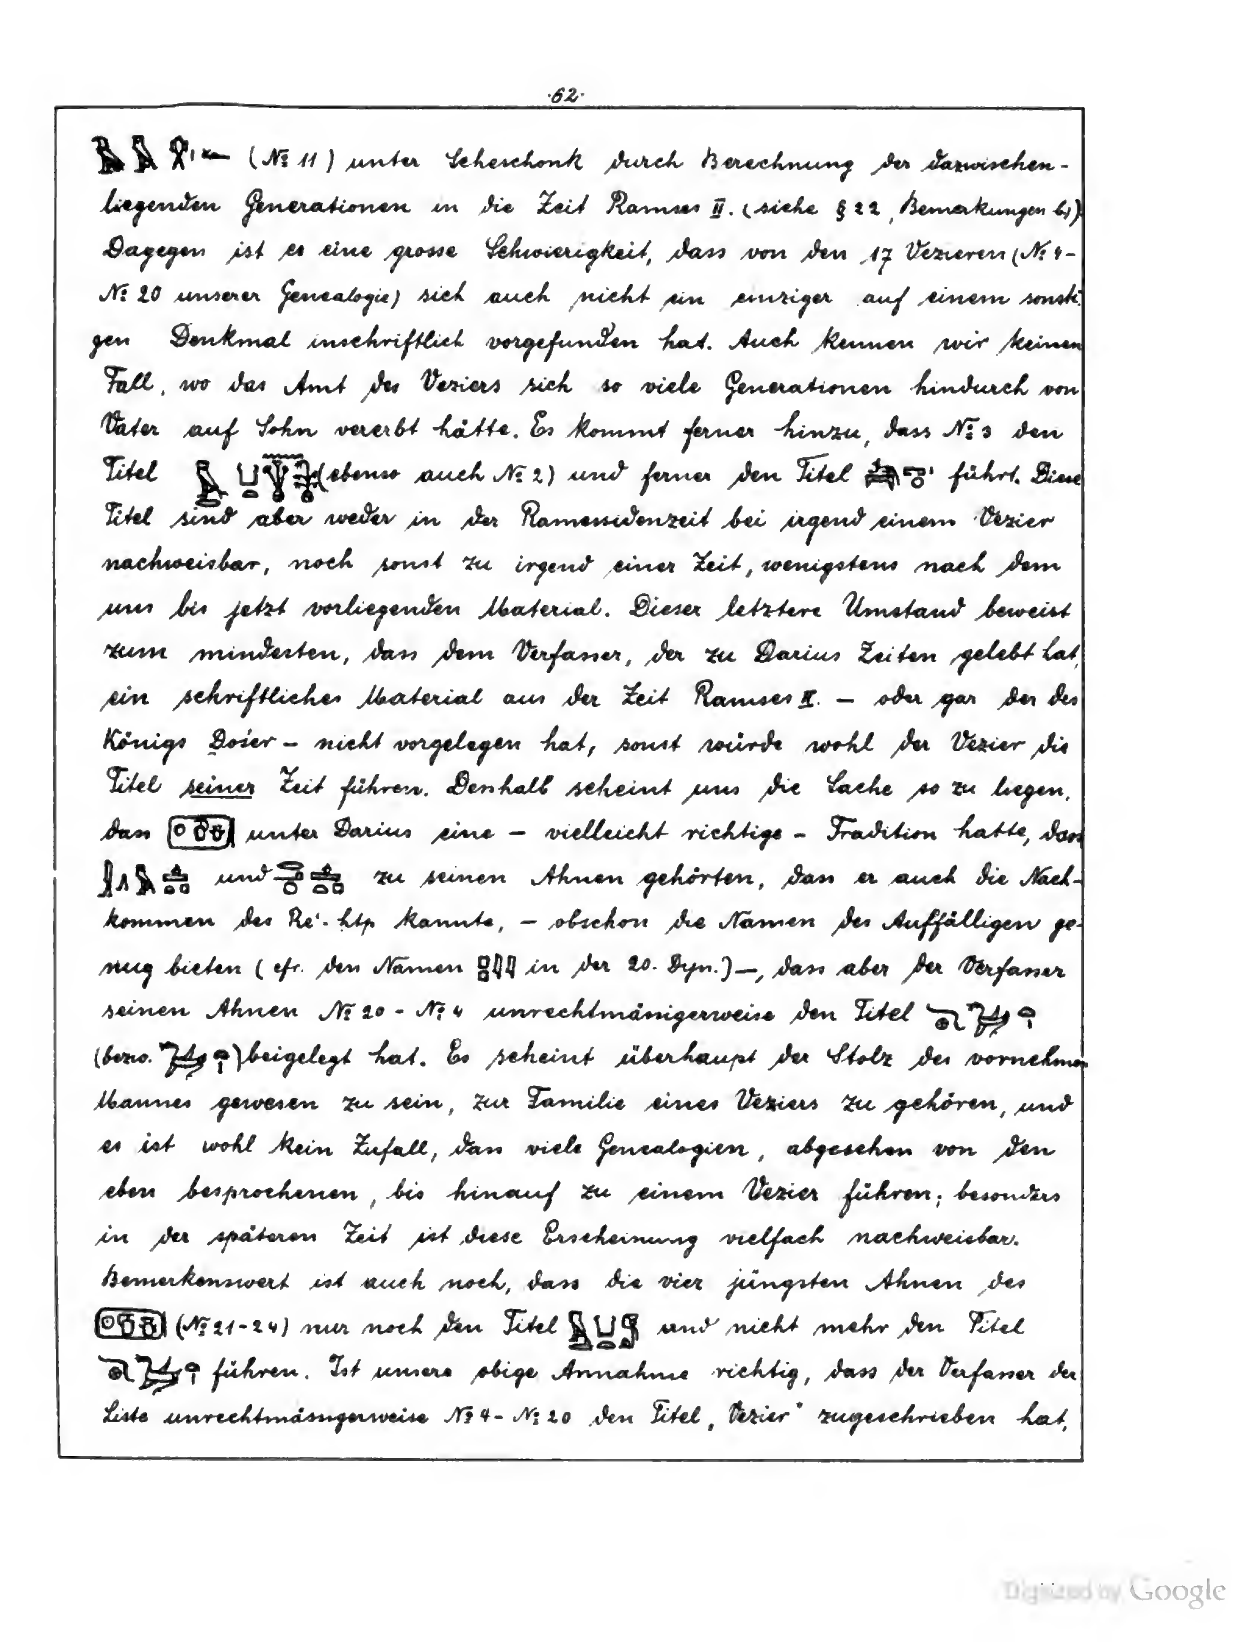 ·62·
(№ 11) unter Scheschonk durch Berechnung der dazwischen-
liegenden Generationen in die Zeit Ramses II. (siehe § 22, Bemerkungen b,)
Dagegen ist es eine grosse Schwierigkeit, dass von den 17 Vezieren (№ 4-
№ 20 unserer Genealogie) sich auch nicht ein einziger auf einem sonsti-
gen Denkmal inschriftlich vorgefunden hat. Auch kennen wir keinen
Fall, wo das Amt des Veziers sich so viele Generationen hindurch von
Vater auf Sohn vererbt hätte. Es kommt ferner hinzu, dass № 3 den
Titel (ebenso auch № 2) und ferner den Titel führt. Diese
Titel sind aber weder in der Ramessidenzeit bei irgend einem Vezier
nachweisbar, noch sonst zu irgend einer Zeit, wenigstens nach dem
uns bis jetzt vorliegenden Material. Dieser letztere Umstand beweist
zum mindesten, dass dem Verfasser, der zu Darius Zeiten gelebt hat,
ein schriftliches Material aus der Zeit Ramses II. – oder gar der des
Königs Doser – nicht vorgelegen hat, sonst würde wohl der Vezier die
Titel seiner Zeit führen. Deshalb scheint uns die Sache so zu liegen,
dass unter Darius eine – vielleicht richtige – Tradition hatte, dass
und zu seinen Ahnen gehörten, dass er auch die Nach-
kommen des Reʿ-htp kannte, – obschon die Namen des Auffälligen ge-
nug bieten (cfr. den Namen in der 20. Dyn.) –, dass aber der Verfasser
seinen Ahnen № 20 - № 4 unrechtmässigerweise den Titel
(bezw. ) beigelegt hat. Es scheint überhaupt der Stolz des vornehmen
Mannes gewesen zu sein, zur Familie eines Veziers zu gehören, und
es ist wohl kein Zufall, dass viele Genealogien, abgesehen von den
eben besprochenen, bis hinauf zu einem Vezier führen; besonders
in der späteren Zeit ist diese Erscheinung vielfach nachweisbar.
Bemerkenswert ist auch noch, dass die vier jüngsten Ahnen des
(№ 21-24) nur noch den Titel und nicht mehr den Titel
führen. Ist unsere obige Annahme richtig, dass der Verfasser der
Liste unrechtmässigerweise № 4 - № 20 den Titel „Vezier" zugeschrieben hat,
Digitized by Google